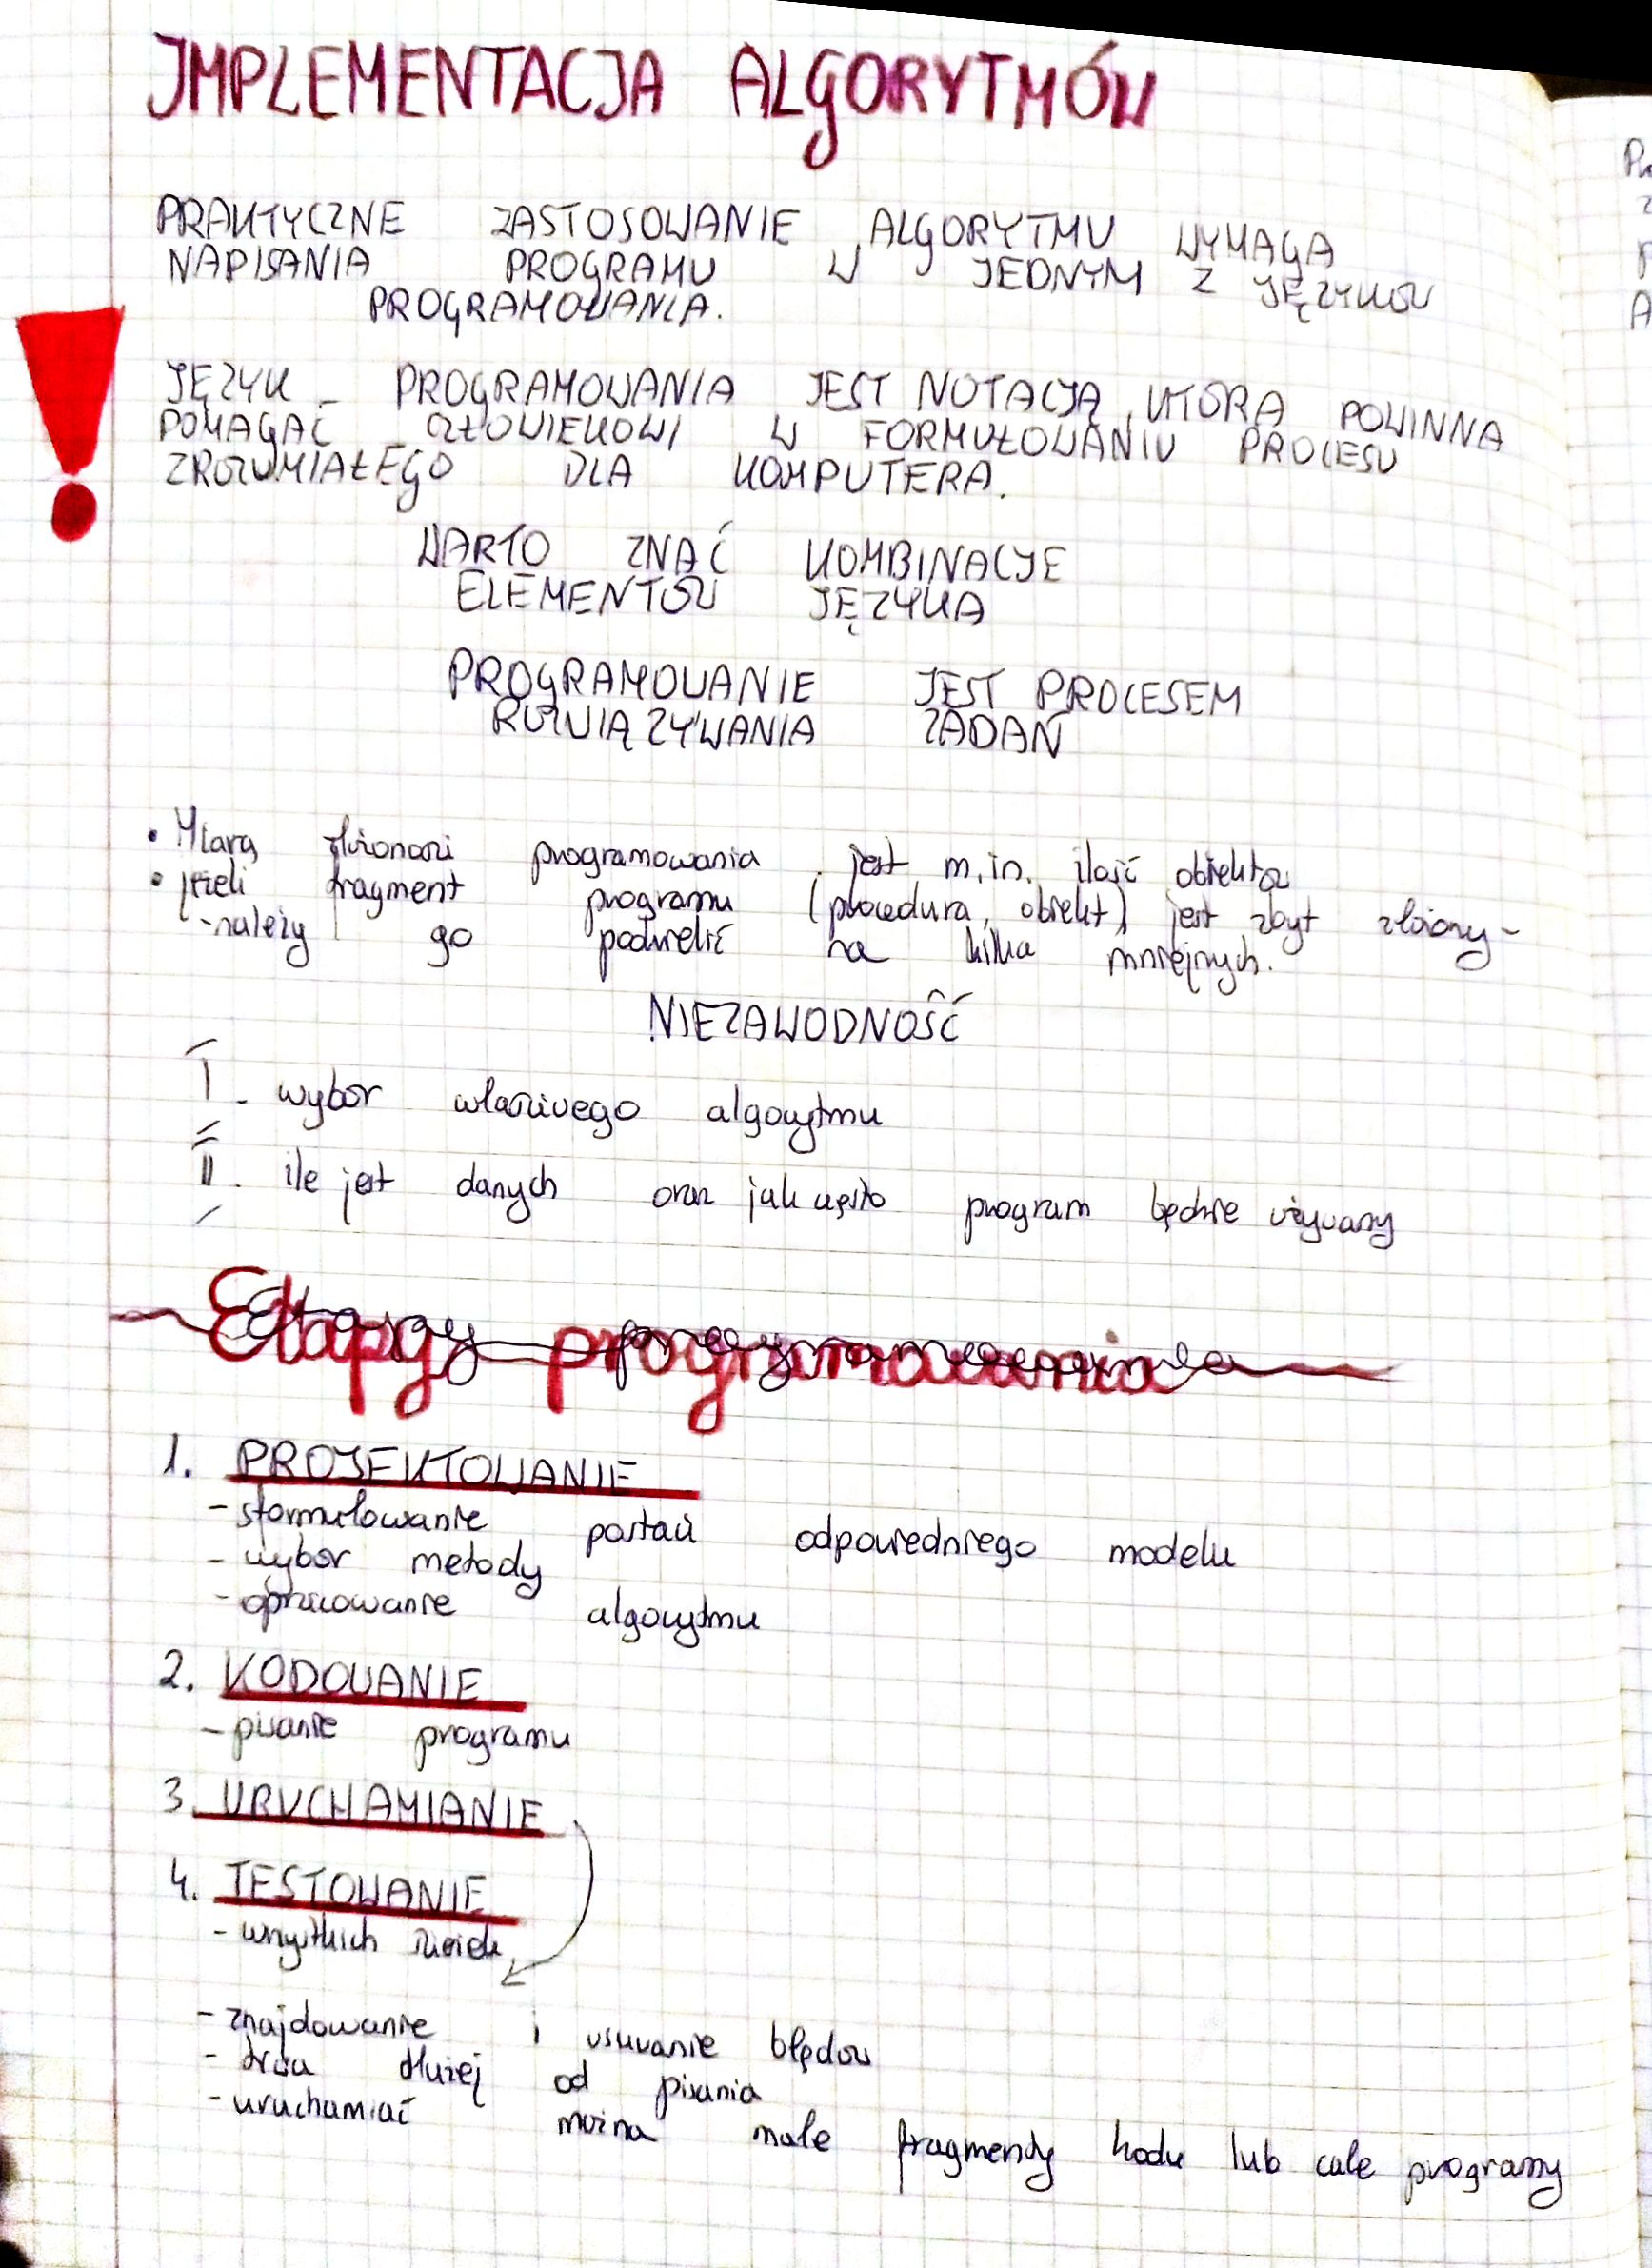 IMPLEMENTACJA ALGORYTMÓW
PRAKTYCZNE ZASTOSOWANIE ALGORYTMU WYMAGA
NAPISANIA PROGRAMU W JEDNYM Z JĘZYKÓW
PROGRAMOWANIA.
JĘZYK PROGRAMOWANIA JEST NOTACJĄ, KTÓRA POWINNA
POMAGAĆ CZŁOWIEKOWI W FORMUŁOWANIU PROCESU
ZROZUMIAŁEGO DLA KOMPUTERA.
WARTO ZNAĆ KOMBINACJE
ELEMENTÓW JĘZYKA
PROGRAMOWANIE JEST PROCESEM
ROZWIĄZYWANIA ZADAŃ
• Miarą złożoności programowania jest m.in. ilość obiektów
• jeżeli fragment programu (procedura, obiekt) jest zbyt złożony -
- należy go podzielić na kilka mniejszych.
NIEZAWODNOŚĆ
I - wybór właściwego algorytmu
II. ile jest danych oraz jak często program będzie używany
Etapy programowania
1. PROJEKTOWANIE
- sformułowanie postaci odpowiedniego modelu
- wybór metody
- opracowanie algorytmu
2. KODOWANIE
- pisanie programu
3. URUCHAMIANIE
4. TESTOWANIE
- wszystkich ścieżek
- znajdowanie i usuwanie błędów
- trwa dłużej od pisania
- uruchamiać można małe fragmenty kodu lub całe programy
P
A